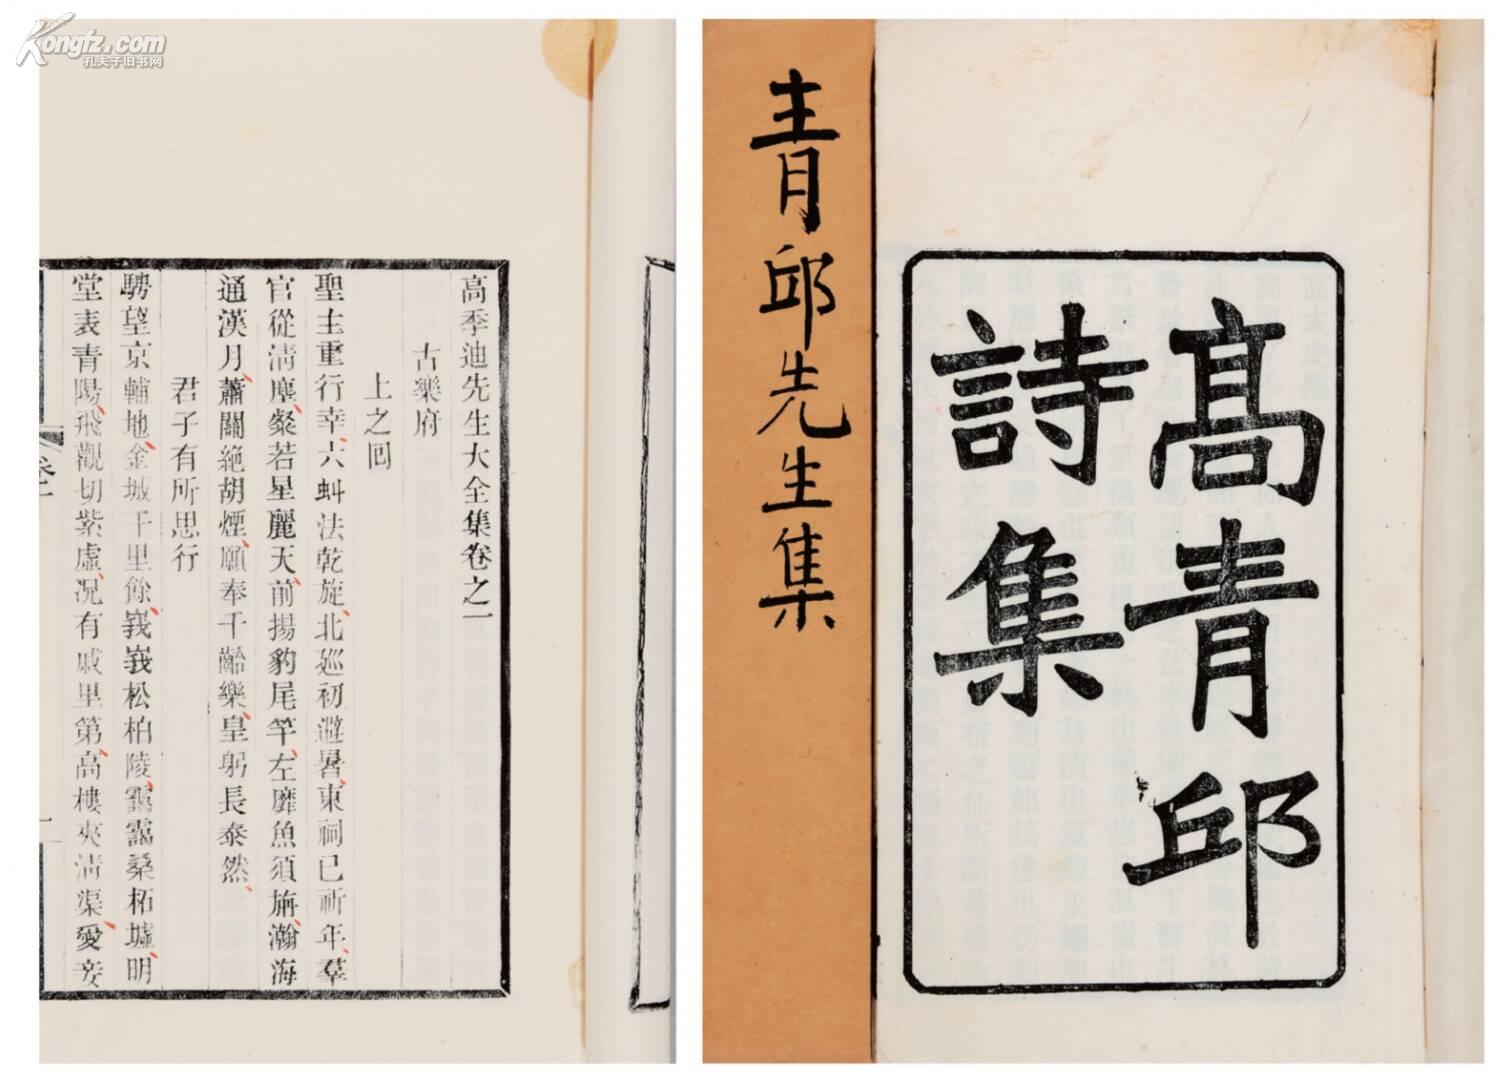 Kongfz.com
孔夫子旧书网
高季迪先生大全集卷之一
古樂府
上之回
聖主重行幸六蚪法乾旋北廵初避暑東祠已祈年羣
官從淸塵粲若星麗天前揚豹尾竿左靡魚須旃瀚海
通漢月蕭關絶胡煙願奉千齡樂皇躬長泰然
君子有所思行
騁望京輔地金城千里餘峩峩松柏陵靄靄桑柘墟明
堂表青陽飛觀切紫虛况有戚里第高樓夾淸渠愛妾
青邱先生集
高青邱
詩集